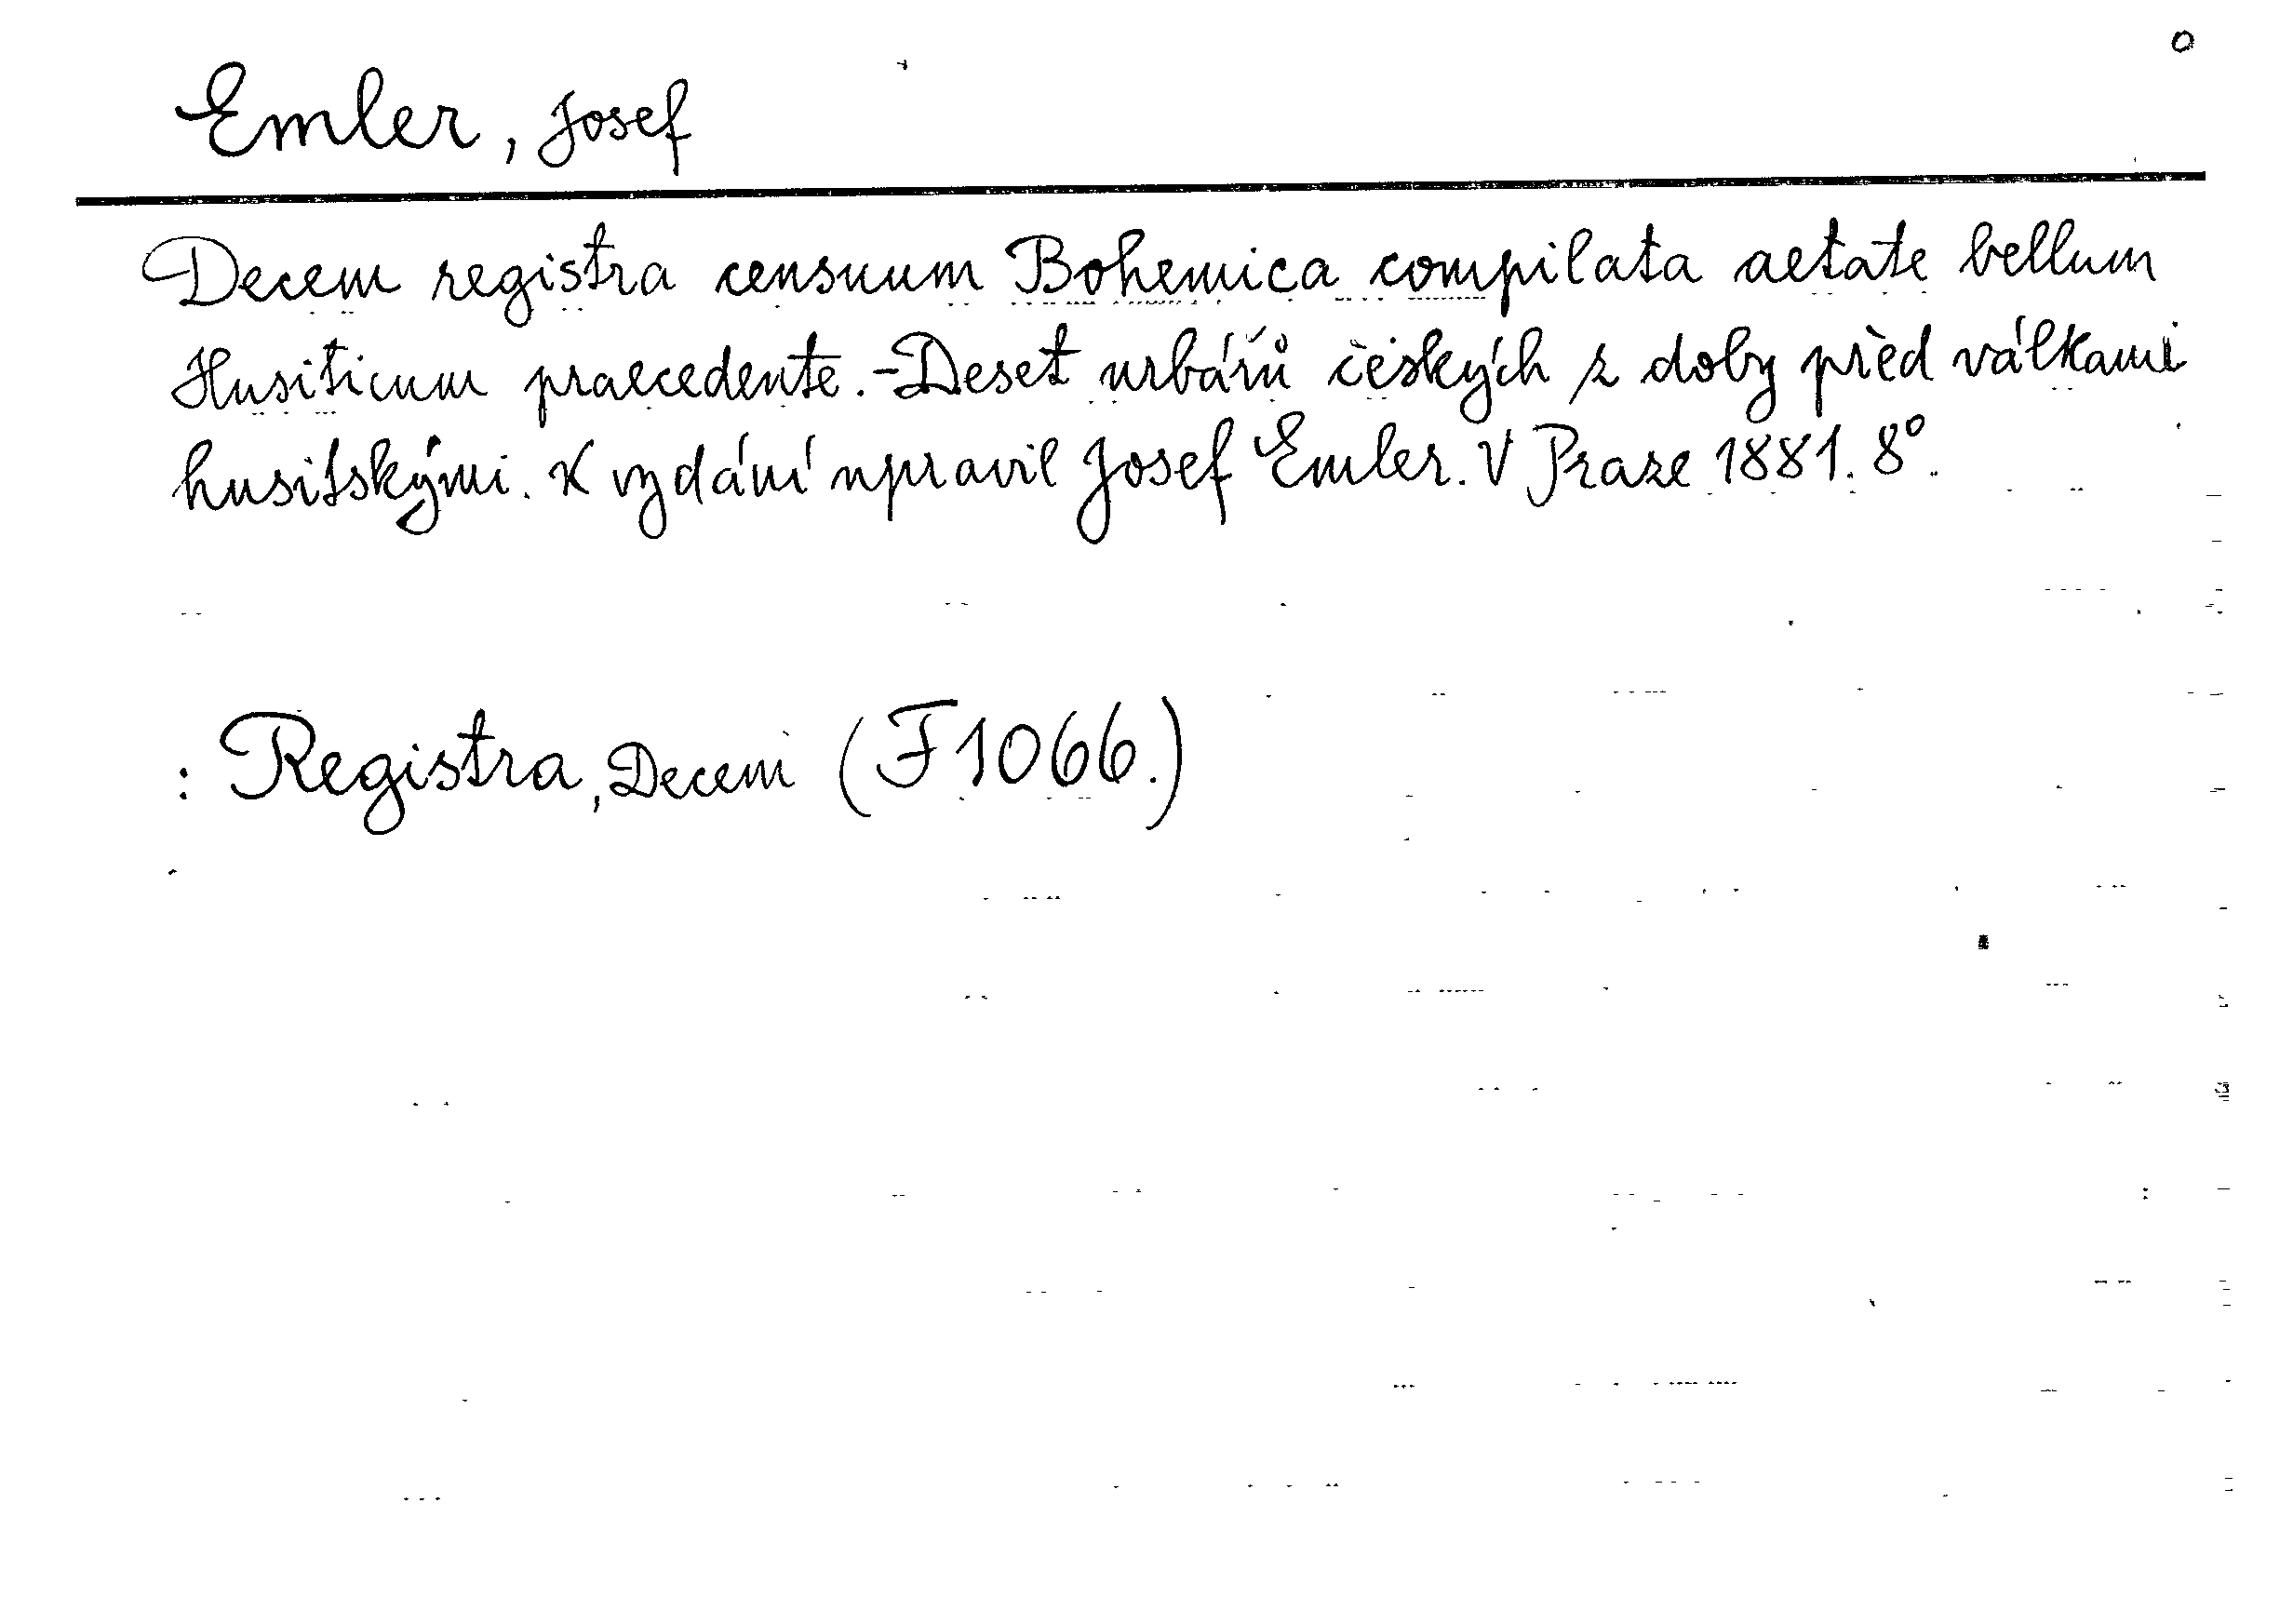 o
Emler, Josef
Decem registra censuum Bohemica compilata aetate bellum
Husiticum praecedente.-Deset urbářů českých z doby před válkami
husitskými. K vydání upravil Josef Emler. V Praze 1881. 8°.
: Registra, Decem (F1066.)